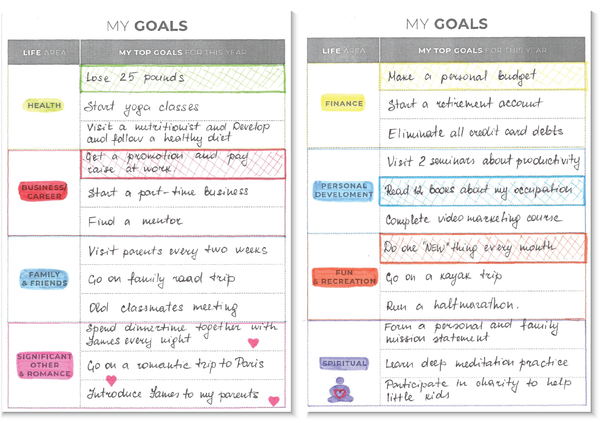 MY GOALS
LIFE AREA
MY TOP GOALS FOR THIS YEAR
HEALTH
Lose 25 pounds
Start yoga classes
Visit a nutritionist and Develop
and follow a healthy diet
BUSINESS/
CAREER
Get a promotion and pay
raise at work.
Start a part-time business
Find a mentor
FAMILY
& FRIENDS
Visit parents every two weeks
Go on family road trip
Old classmates meeting
SIGNIFICANT
OTHER
& ROMANCE
Spend dinnertime together with
James every night
Go on a romantic trip to Paris
Introduce James to my parents
MY GOALS
LIFE AREA
MY TOP GOALS FOR THIS YEAR
FINANCE
Make a personal budget
Start a retirement account
Eliminate all credit card debts
PERSONAL
DEVELOMENT
Visit 2 seminars about productivity
Read 12 books about my occupation
Complete video marketing course
FUN
& RECREATION
Do one "NEW" thing every month
Go on a kayak trip
Run a halfmarathon.
SPIRITUAL
Form a personal and family
mission statement
Learn deep meditation practice
Participate in charity to help
little kids